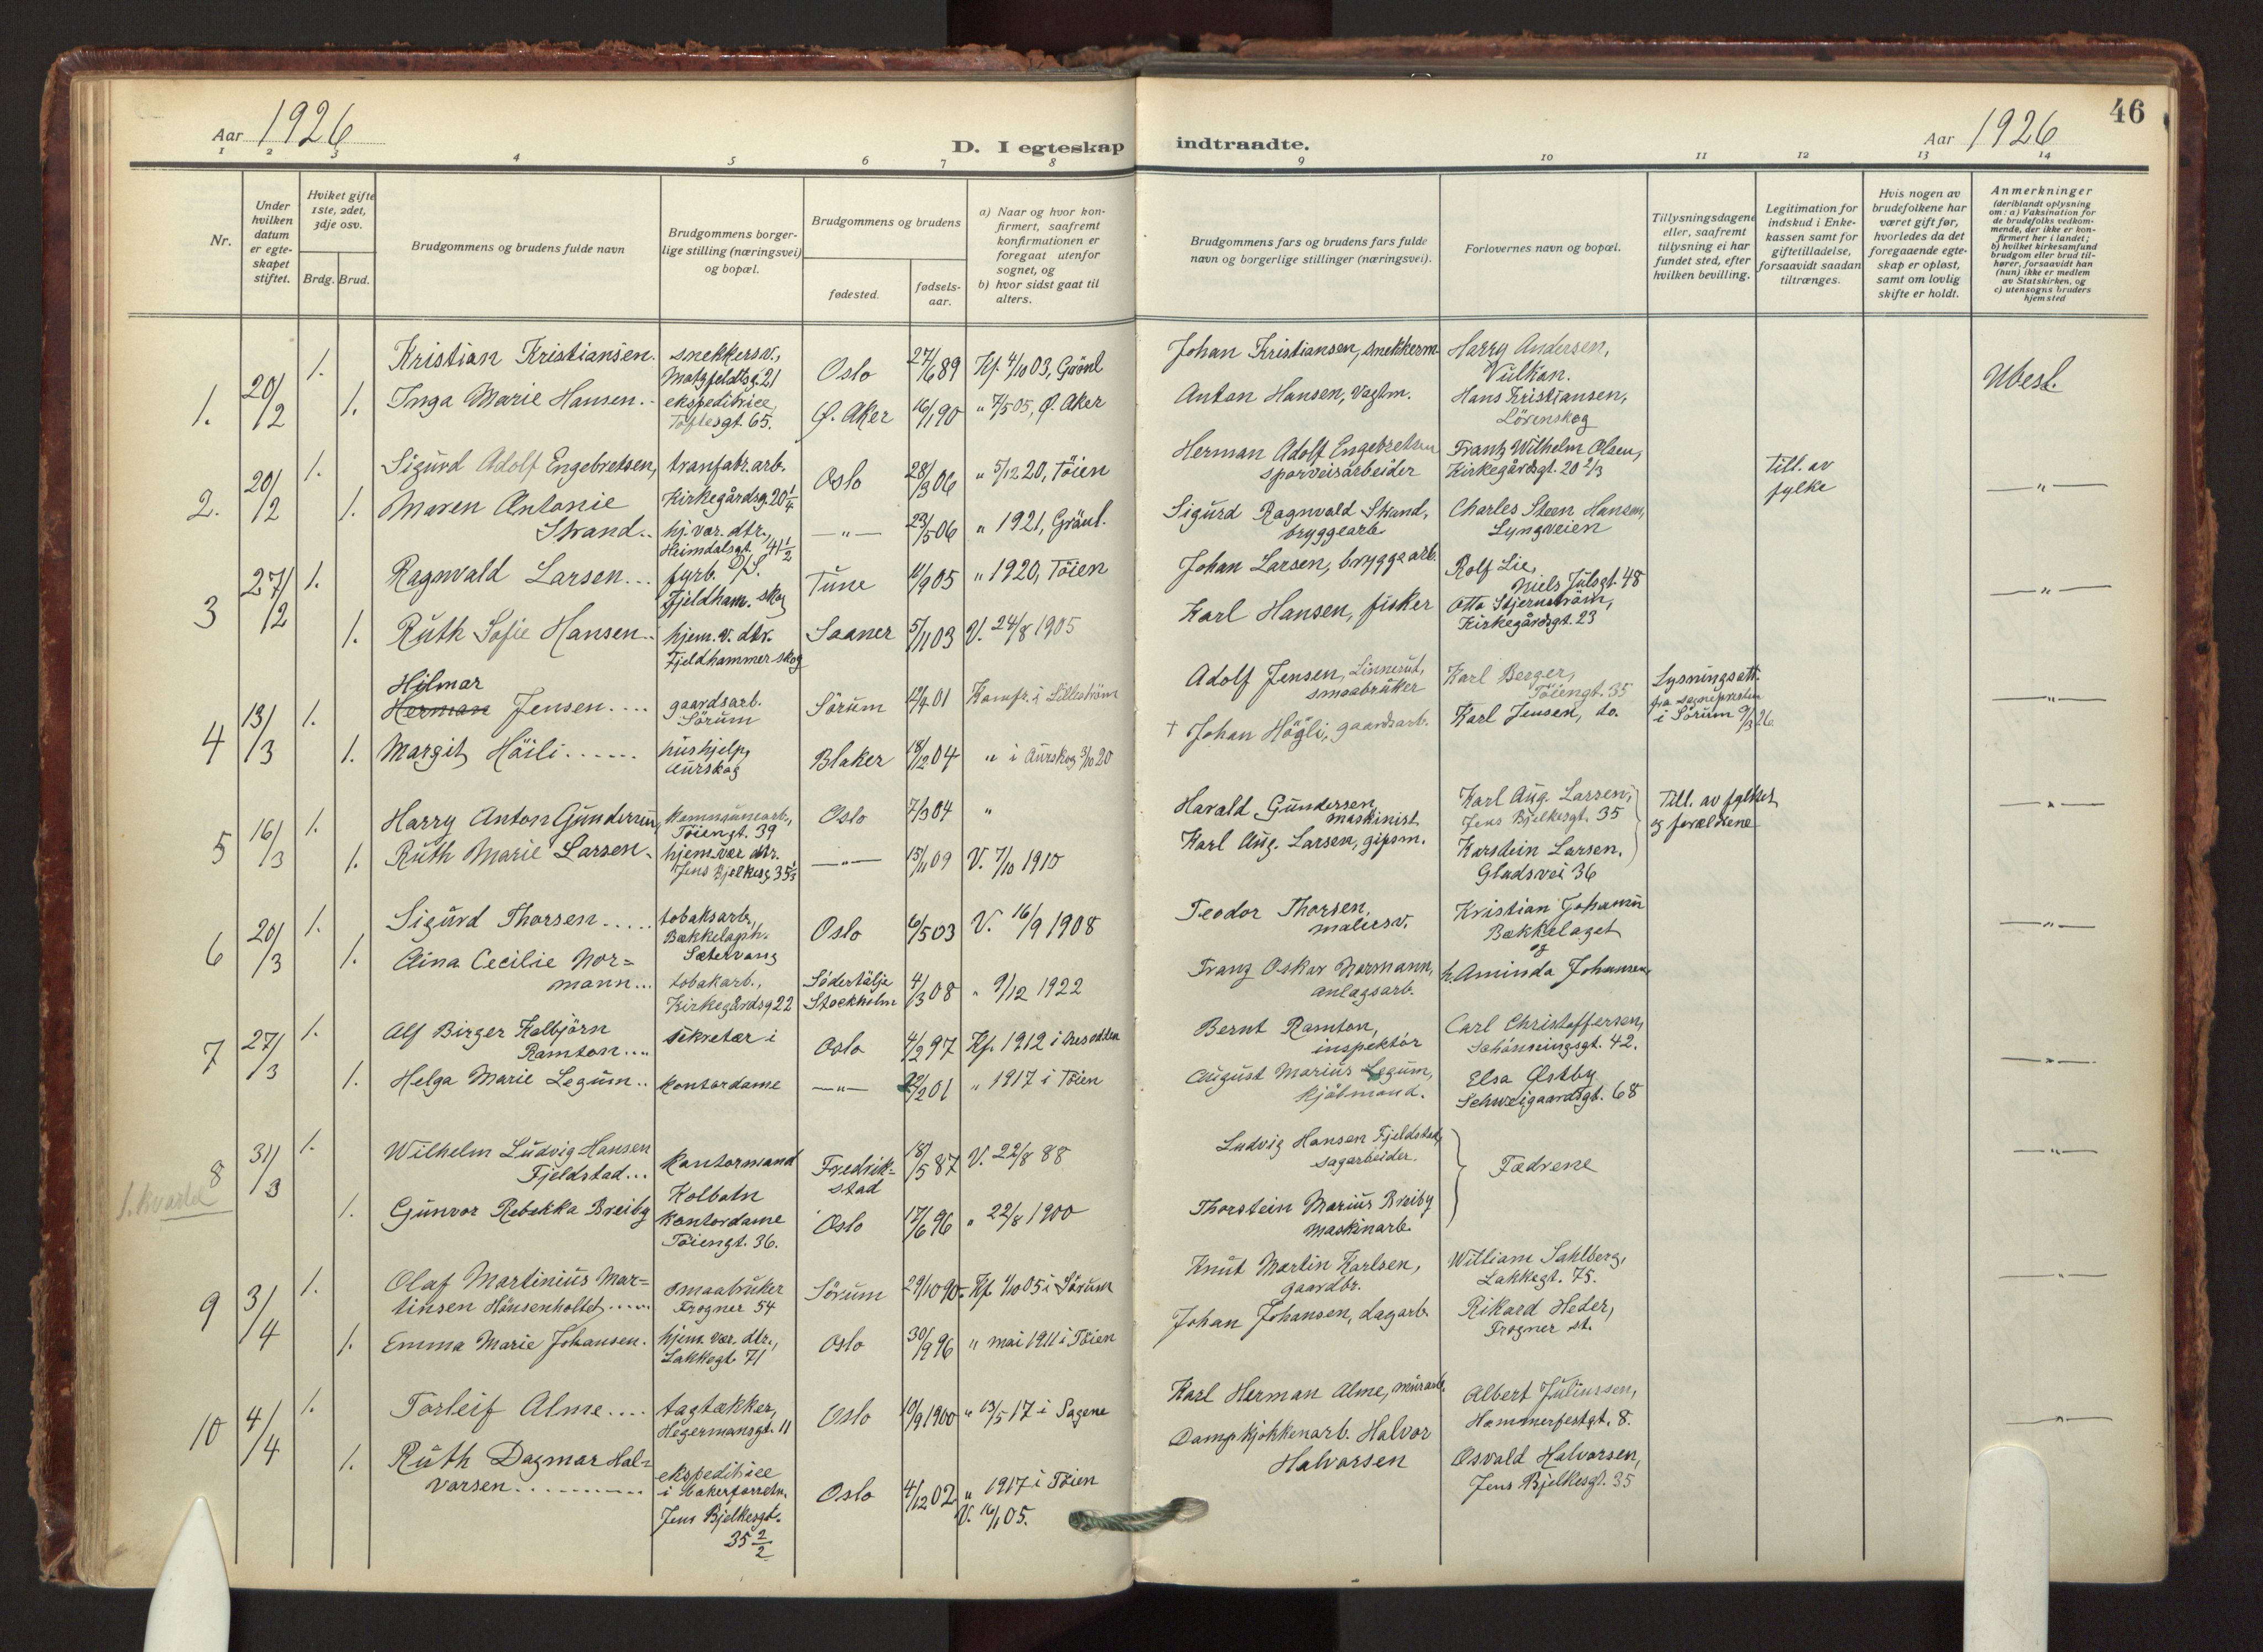 Aar 1926
D. I egteskap indtraadte.
Aar 1926
46
1 2 3 4 5 6 7 8 9 10 11 12 13 14
Nr.
Under hvilken datum er egteskapet stiftet.
Hviket gifte 1ste, 2det, 3dje osv.
Brdg. Brud.
Brudgommens og brudens fulde navn
Brudgommens borgerlige stilling (næringsvei) og bopæl.
Brudgommens og brudens
fødested.
fødselsaar.
a) Naar og hvor konfirmert, saafremt konfirmationen er foregaat utenfor sognet, og
b) hvor sidst gaat til alters.
Brudgommens fars og brudens fars fulde navn og borgerlige stillinger (næringsvei).
Forlovernes navn og bopæl.
Tillysningsdagene eller, saafremt tillysning ei har fundet sted, efter hvilken bevilling.
Legitimation for indskud i Enkekassen samt for giftetilladelse, forsaavidt saadan tiltrænges.
Hvis nogen av brudefolkene har været gift før, hvorledes da det foregaaende egteskap er opløst, samt om lovlig skifte er holdt.
Anmerkninger (deriblandt oplysning om: a) Vaksination for de brudefolks vedkommende, der ikke er konfirmert her i landet; b) hvilket kirkesamfund brudgom eller brud tilhører, forsaavidt han (hun) ikke er medlem av Statskirken, og c) utensogns bruders hjemsted
1. 20/2 1. Kristian Kristiansen. snekkersv., Motzfeldtsg. 21 Oslo 27/6 89 Kf. 4/10 03, Grönl. Johan Kristiansen, snekkerm. Harry Andersen, Vulkan. Ubesl.
1. Inga Marie Hansen. ekspeditrice Toftesgt. 65. Ø. Aker 16/1 90 " 7/5 05, Ø. Aker Anton Hansen, vagtm. Hans Kristiansen, Lörenskog
2. 20/2 1. Sigurd Adolf Engebretsen, tranfabr. arb. Kirkegårdsg. 20 1/4 Oslo 28/3 06 " 5/12 20, Töien Herman Adolf Engebretsen sporveisarbeider Frantz Wilhelm Olsen, Kirkegårdsgt. 20 2/3 Till. av fylke — " —
1. Maren Antonie Strand.. hj. vær. dtr., Heimdalsgt. 41 1/2 — " — 23/5 06 " 1921, Grönl. Sigurd Ragnvald Strand, bryggearb. Charles Steen Hansen, Lyngveien
3 27/2 1. Ragnvald Larsen... fyrb. D/S. Fjeldham. skog Tune 11/9 05 " 1920, Töien Johan Larsen, bryggearb. Rolf Lie, Niels Julsgt. 48 — " —
1. Ruth Sofie Hansen.. hjem. v. dtr. Fjeldhammer skog Saaner 5/11 03 V. 24/8 1905 Karl Hansen, fisker Otto Stjernström, Kirkegårdsgt. 23
4 13/3 1. Hilmar Herman Jensen.... gaardsarb. Sörum Sörum 01 Konfr. i Lilleström Adolf Jensen, smaabruker Karl Berger, Töiengt. 35 Lysningsatt. fra sognepresten i Sörum 9/3 26 — " —
1. Margit Höili...... hushjelp, Aurskog Blaker 18/12 04 " i Aurskog 3/10 20 † Johan Högli, gaardsarb. Karl Jensen, do.
5 16/3 1. Harry Anton Gundersen, kommunearb., Töiengt. 39 Oslo 7/3 04 " Harald Gundersen, maskinist Karl Aug. Larsen, Jens Bjelkesgt. 35 Till. av fylket og forældrene — " —
1. Ruth Marie Larsen. hjem. vær. dtr. Jens Bjelkesg. 35 1/3 — " — 15/11 09 V. 7/10 1910 Karl Aug. Larsen, gipsm. Karstein Larsen, Gladsvei 36
6 20/3 1. Sigurd Thorsen..... tobaksarb., Bækkelagsh. Sætervang Oslo 6/5 03 V. 16/9 1908 Teodor Thorsen, malersv. Kristian Johansen Bækkelaget og — " —
1. Aina Cecilie Normann... tobakarb., Kirkegårdsg 22 Södertälje Stockholm 4/3 08 " 9/12 1922 Franz Oskar Normann, anlagsarb. h. Aminda Johansen
7 27/3 1. Alf Birger Kolbjörn Ramton.... sekretær i Oslo 4/2 97 Kf. 1912 i Bresodden Bernt Ramton, inspektör Carl Christoffersen, Schönningsgt. 42. — " —
1. Helga Marie Legum.. kontordame — " — 22/2 01 " 1917 i Töien August Marius Legum, kjöbmand. Elsa Østby Schweigaardsgt. 68
8 31/3 1. Wilhelm Ludvig Hansen Fjeldstad... kontormand Kolbotn Fredrikstad 18/5 87 V. 22/8 88 Ludvig Hansen Fjeldstad, sagarbeider. Fædrene — " —
1. kvartal
1. Gunvor Rebekka Breiby kontordame Töiengt. 36. Oslo 17/6 96 " 22/8 1900 Thorstein Marius Breiby maskinarb.
9 3/4 1. Olaf Martinius Martinsen Hönsenholtet..... smaabruker Frogner 54 Sörum 29/10 90 Kf. 1/10 05 i Sörum Knut Martin Karlsen, gaardbr. William Sahlberg, Lakkegt. 75. — " —
1. Emma Marie Johansen. hjem. vær. dtr., Lakkegt. 71 Oslo 30/9 96 " mai 1911 i Töien Johan Johansen, dagarb. Rikard Heder, Frogner st.
10 4/4 1. Torleif Alme.... tagtækker, Hegermansgt. 11 Oslo 10/9 1900 " 13/5 17 i Sagene Karl Herman Alme, murarb. Albert Juliussen, Hammerfestgt. 8. — " —
1. Ruth Dagmar Halvorsen.......... ekspeditrice i bakerforretn. Jens Bjelkesgt. 35 2/2 Oslo 4/12 02 " 1917 i Töien V. 16/1 05. Dampkjökkenarb. Halvor Halvorsen Osvald Halvorsen, Jens Bjelkesgt. 35